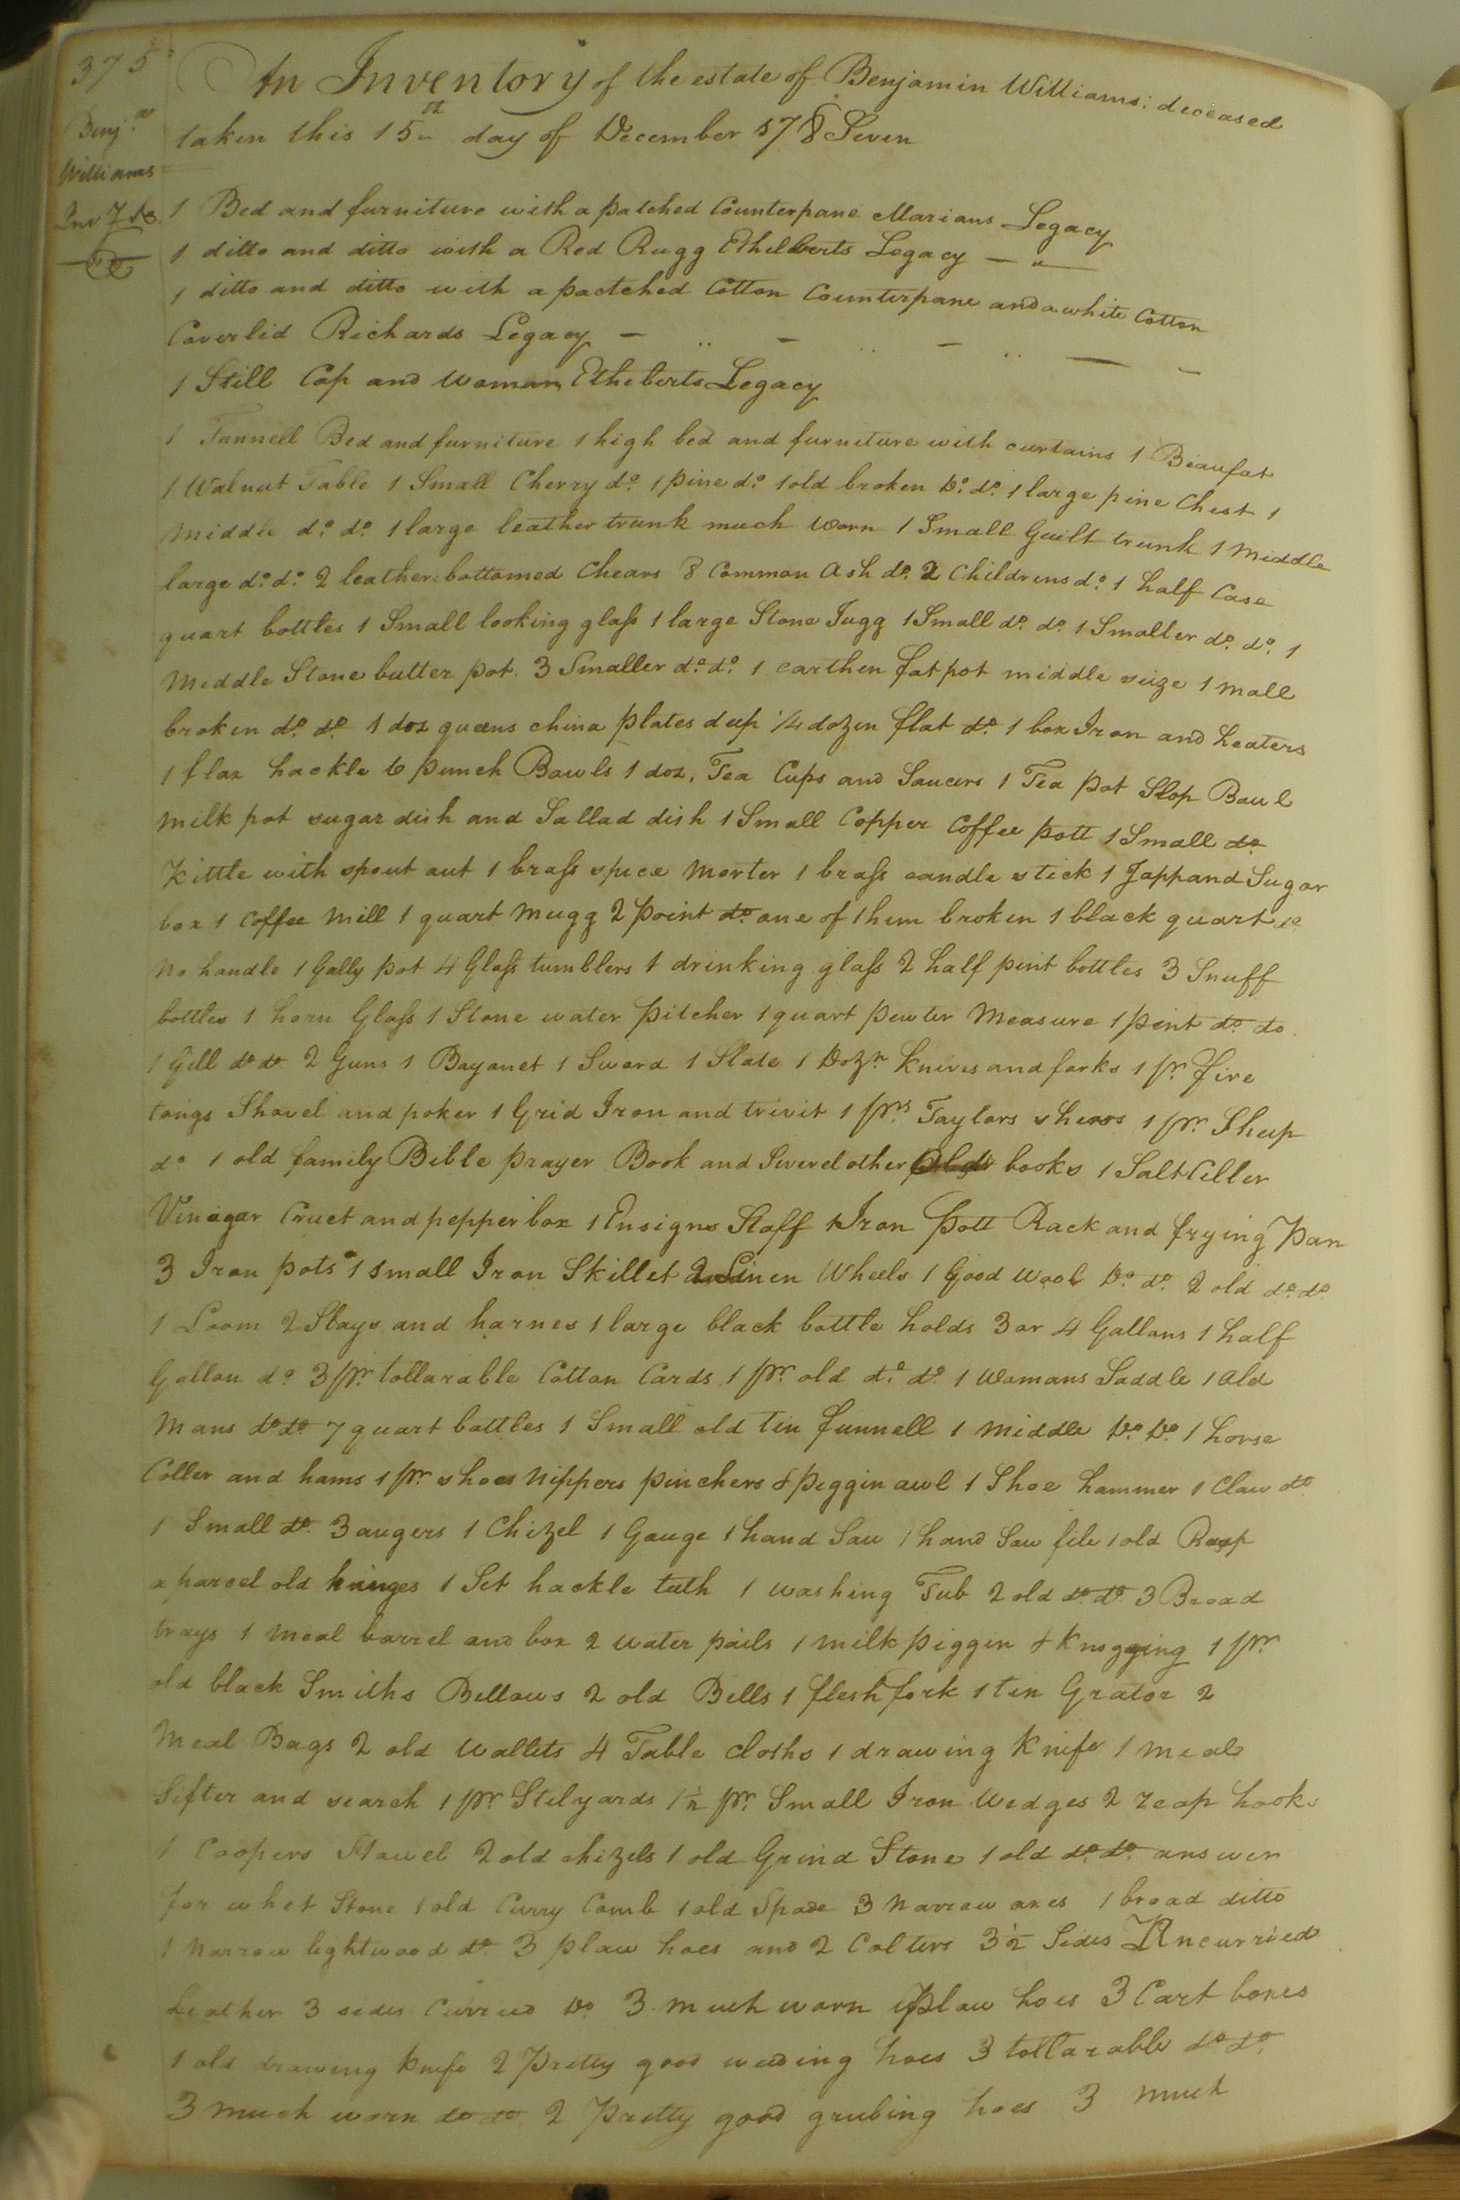 375
Benj.a
Williams
Inv 7 ds
An Inventory of the estate of Benjamin Williams: deceased
taken this 15th day of December 178 Seven
1 Bed and furniture with a patched Counterpane Marians Legacy
1 ditto and ditto with a Red Rugg Ethelberts Legacy — " —
1 ditto and ditto with a pactched Cotton Counterpane and a white Cotton
Coverlid Richards Legacy — " — " — " — —
1 Still Cap and Woman Ethelberts Legacy
1 Tunnell Bed and furniture 1 high bed and furniture with curtains 1 Beaufat
1 Walnut Table 1 Small Cherry do. 1 pine do. 1 old broken Do. do. 1 large pine Chest 1
Middle do. do. 1 large leather trunk much Worn 1 Small Guilt trunk 1 Middle
large do. do. 2 leather bottomed Chears 8 Common Ash do. 2 Childrens do. 1 half Case
quart bottles 1 Small looking glass 1 large Stone Jugg 1 Small do. do. 1 Smaller do. do. 1
Middle Stone butter pot 3 Smaller do. do. 1 earthen fat pot middle size 1 mall
broken do. do. 1 doz queens china plates deep 1/4 dozen flat do. 1 box Iron and heaters
1 flax hackle 6 punch Bawls 1 doz. Tea Cups and Saucers 1 Tea pot Slop Bawl
Milk pot sugar dish and Sallad dish 1 Small Copper Coffee pott 1 Small do
Kittle with spout out 1 brass spice Morter 1 brass candle stick 1 Jappand Sugar
box 1 Coffee Mill 1 quart Mugg 2 point do. one of them broken 1 black quart do
No handle 1 Gally pot 4 Glass tumblers 1 drinking glass 2 half pint bottles 3 Snuff
bottles 1 horn Glass 1 Stone water pitcher 1 quart pewter Measure 1 pint do do.
1 Gill do do. 2 Guns 1 Bayonet 1 Sword 1 Slate 1 Dozn. knives and forks 1 pr. fire
tongs Shovel and poker 1 Grid Iron and trivit 1 prs. Taylors shears 1 pr. Sheep
do. 1 old family Bible prayer Book and Severel other books 1 Salt Celler
Vinegar Cruet and pepper box 1 Ensigns Staff 1 Iron pott Rack and frying pan
3 Iron pots 1 small Iron Skillet 2 Linen Wheels 1 Good Wool Do. do. 2 old do. do.
1 Loom 2 Slays and harnes 1 large black bottle holds 3 or 4 Gallons 1 half
Gallon do. 3 pr. tollarable Cotton Cards 1 pr. old do. do. 1 Womans Saddle 1 old
Mans do. do. 7 quart bottles 1 Small old tin funnell 1 middle Do. Do. 1 horse
Coller and hams 1 pr. shoes Nippers pinchers & peggin awl 1 Shoe hammer 1 Claw do.
1 Small do. 3 augers 1 Chizel 1 Gauge 1 hand Saw 1 hand Saw file 1 old Rasp
a parcel old hinges 1 Set hackle teeth 1 washing Tub 2 old do. do. 3 Bread
trays 1 meal barrel and box 2 water pails 1 milk piggin & knogging 1 pr.
old black Smiths Bellows 2 old Bells 1 flesh fork 1 tin Grator 2
Meal Bags 2 old Wallets 4 Table cloths 1 drawing knife 1 meal
Sifter and search 1 pr. Stilyards 1 1/2 pr. Small Iron Wedges 2 reap hooks
1 Coopers 2 old chizels 1 old Grind Stone 1 old do. do. answer
for whet Stone 1 old Curry Comb 1 old Spade 3 Narrow axes 1 broad ditto
1 Narrow lightwood do. 3 plaw hoes and 2 Colters 3 1/2 Sides Uncurried
Leather 3 sides Curried Do 3 much worn plaw hoes 3 Cart boxes
1 old drawing knife 2 Pretty good weeding hoes 3 tollarable do. do.
3 much worn do do 2 Pretty good grubing hoes 3 much